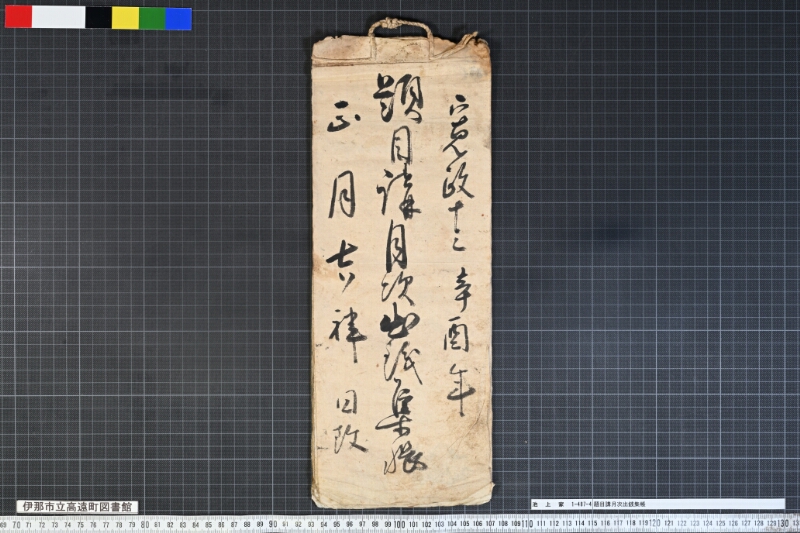 寛政十三辛酉年
題目講月次出銭集帳
正月吉祥日改
伊那市立高遠町図書館
池上家 1-487-4 題目講月次出銭集帳